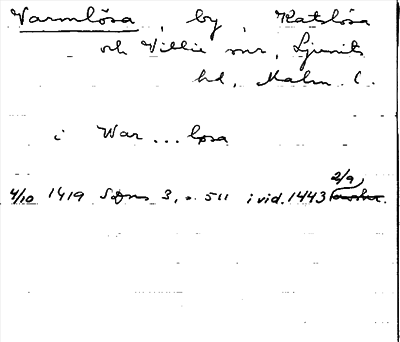 Varmlösa, by, Katslösa
och Villie snr, Ljunits
hd, Malm. l.
i War...løsa
4/10 1419 SDns 3, s. 511 i vid. 1443 2/9.